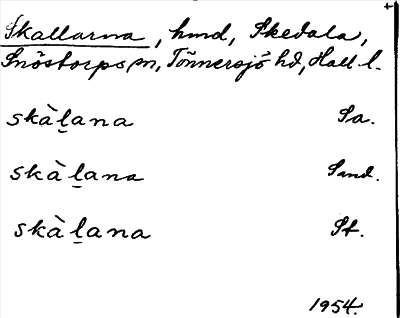 Skallarna, hmd, Skedala,
Snöstorps sn, Tönnersjö hd, Hall l.
skàl̠ana Sa.
skàl̠ana Smd.
skàl̠ana St.
1954.